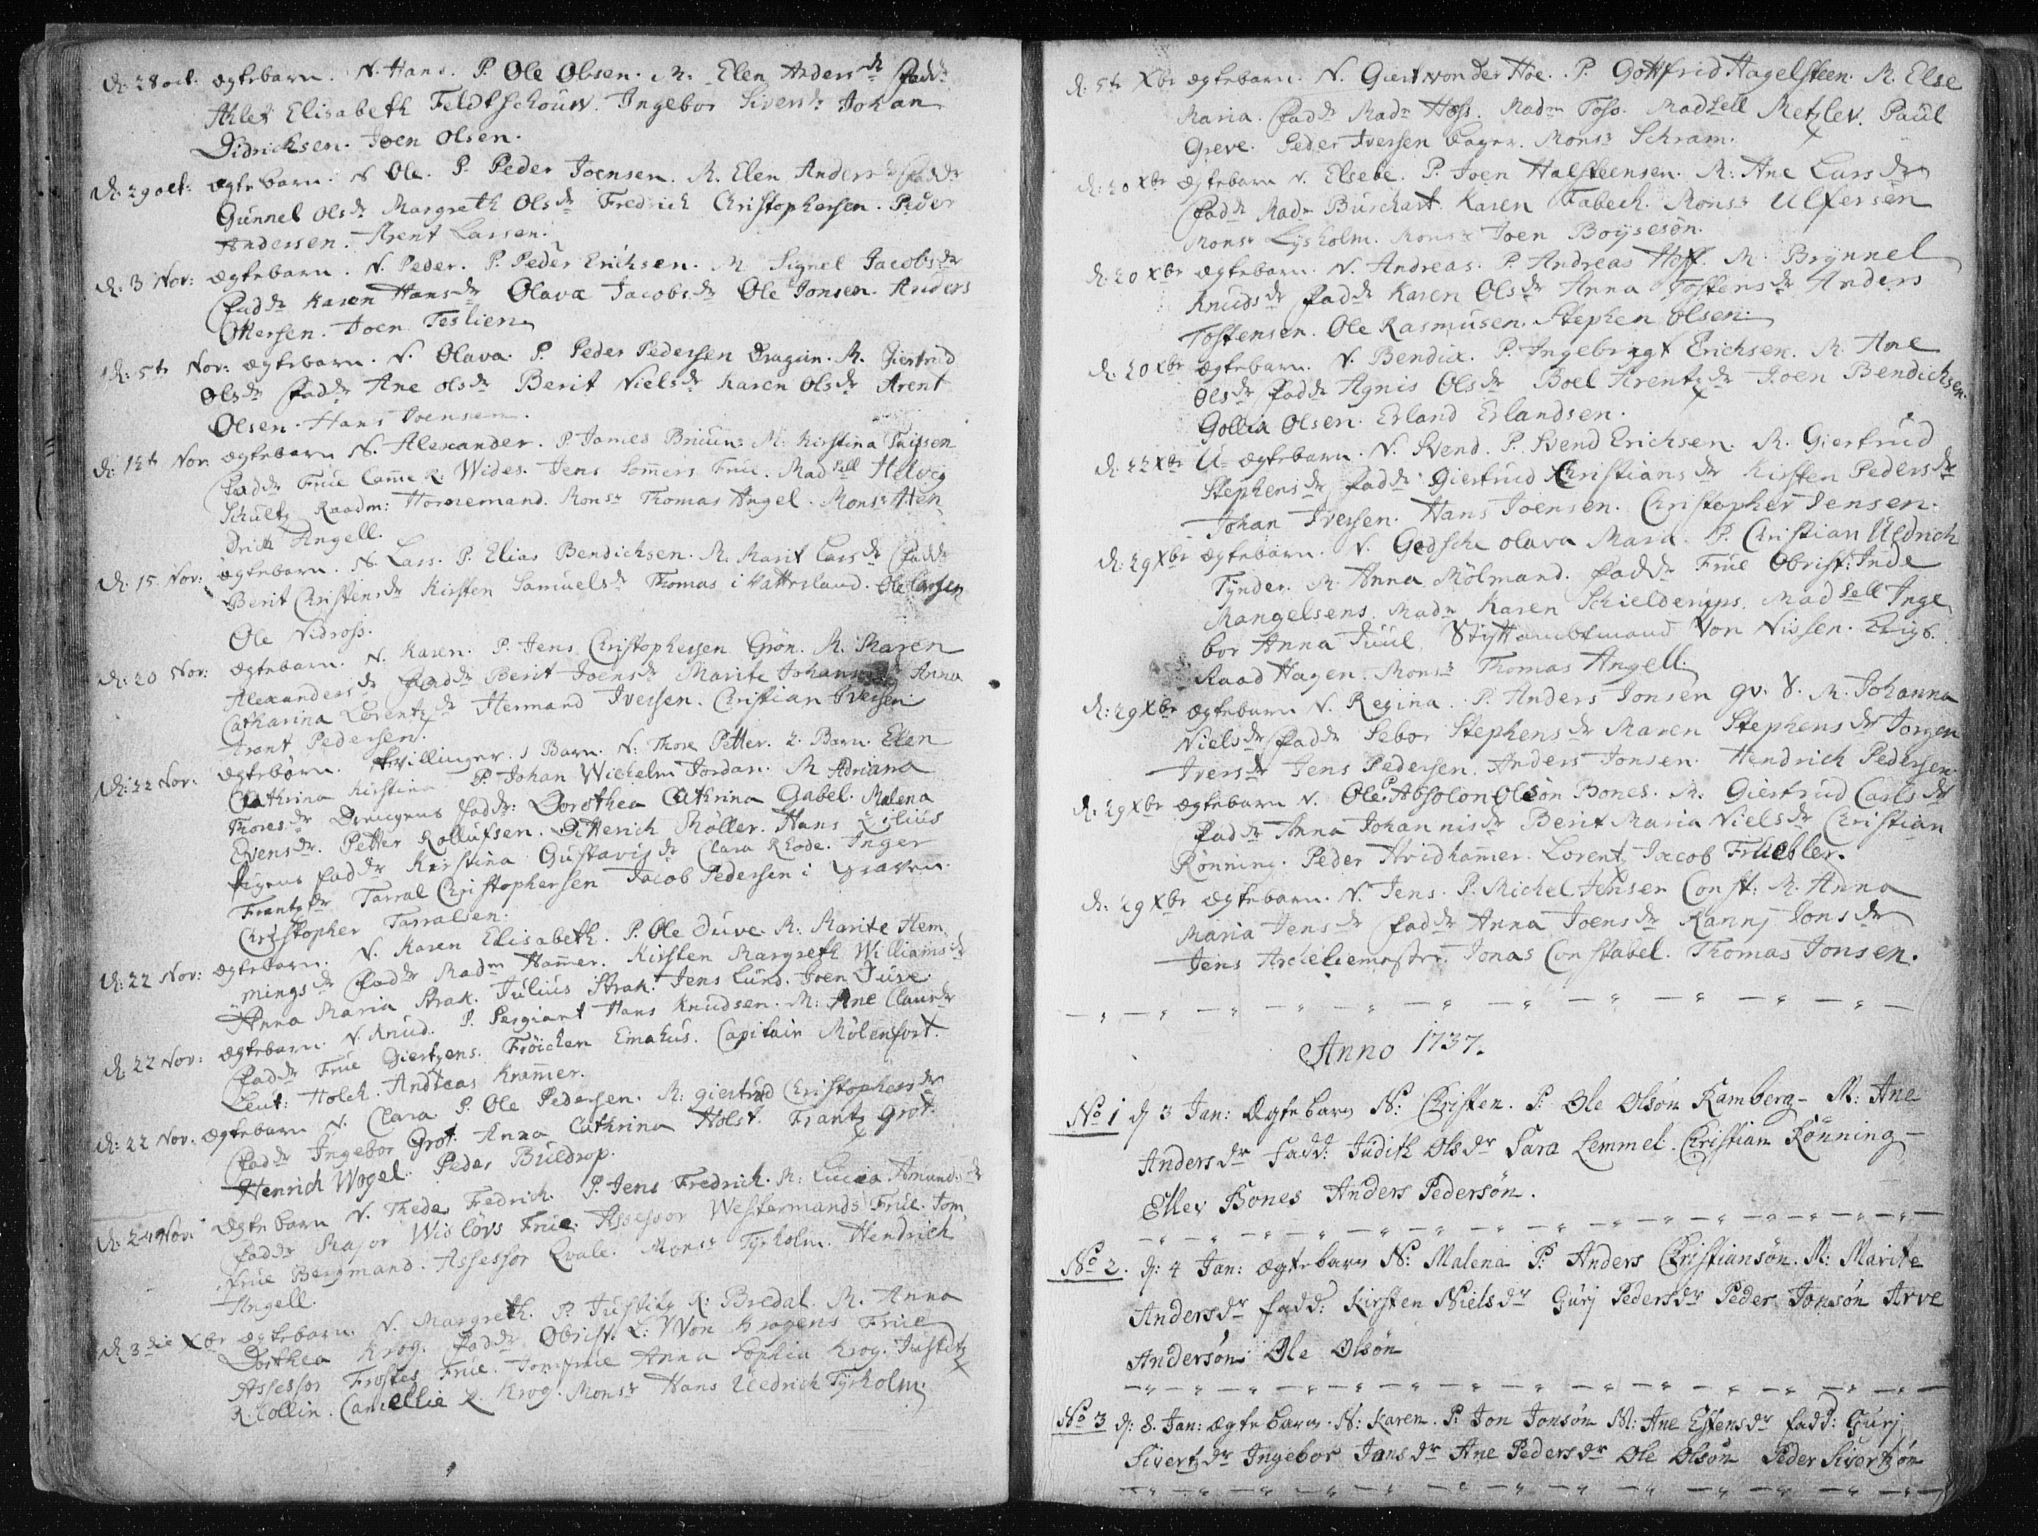 d: 28 oct. ægtebarn. N. Hans. P. Ole Olsen. M. Elen Andersdr fadd:
Ahlet Elisabeth Feldtschouw. Ingebor Siversdr Johan
Didricksen. Joen Olsen.
d: 29 oct: ægtebarn. N Ole. P. Peder Joensen. M. Elen Andersdr fadd:
Gunnel olsdr Margreth Olsdr Fredrich Christophersen. Peder
Andersen. Arent Larsen.
d: 3 Nov: ægtebarn. N. Peder. P. Peder Erichsen. M Signel Jacobsdr
fadd: Karen Hansdr Olava Jacobsdr Ole Jonsen. Anders
Ottersen. Joen Teslien.
d: 5te Nov: ægtebarn. N. Olava. P. Peder Pedersen Dragun. M. Giertrud
Olsdr fadd: Ane olsdr Berit Nielsdr Karen Olsdr Arent
Olsen. Hans Joensen.
d: Nov. ægtebarn N. Alexander. P. James Bruun. M. Kirstina
fadd: Frue Came R: Wides. Jens Somers Frue. Madsell Helvig
Schultz Raadm: Hornemand. Monsr Thomas Angel. Monsr Hen
drich Angell.
d: 15 Nov: ægtebarn. N. Lars. P. Elias Bendichsen. M. Marit Larsdr fadd:
Berit Christensdr Kirsten Samuelsdr Thomas i Watterland. Ole Larsen
Ole Nidross.
d: 20 Nov: ægtebarn. N. Karen. P. Jens Christophersen Grön. M. Maren
Alexandersdr fadd: Berit Joensdr Marite Johansdr Anna
Catharina Lorentzdr Hermand Iversen. Christian Iversen
Arent Pedersen.
d: 22 Nov: ægtebörn. Tvillinger. 1 Barn. N: Thore Petter. 2. Barn. Elen
Cathrina Kirstina P. Johan Wichelm Jordan. M Adriana
Thoresdr Drengens fadd: Dorothea Cathrina Gabel. Malena
Evensdr. Petter Rollufsen. Ditterich Møller. Hans
Pigens fadd: Kirstina Gustavisdr Clara Rhode. Inger
Frantzdr Tarral Christophersen Jacob Pedersen i Graven.
Christopher Tarralsen.
d: 22 Nov: ægtebarn. N. Karen Elisabeth. P. Ole Duve. M. Marite Hem
mingsdr fadd: Madm Hamer. Kirsten Margreth Williamsdr
Anna Maria Strak. Julius Strak. Jens Lund. Joen Duve.
d: 22 Nov: ægtebarn. N. Knud. P. Sergiant Hans Knudsen. M: Ane Clausdr
fadd: Frue Giertzens. Fröichen Emahus. Capitain Mölenfort.
Leut: Holch. Andreas Kramer.
d: 22 Nov. ægtebarn N. Clara P. Ole Pedersen. M: Giertrud Christophersdr
fadd: Ingebor Grot. Anna Cathrina Holst. Frantz Grot.
Henrich Wogel. Peder Buldrop.
d: 24 Nov. ægtebarn N. Thede Fedrich. P. Jens Fredrich. M: Lucia Amundsdr
fadd: Major Wislövs Frue. Assessor Westermands Frue. Jom
frue Bergmand. Assessor Qvale. Monsr Tyrholm. Hendrich
Angell.
d: 3die Xbr ægtebarn. N. Margreth. P. Justitz R: Bredal. M. Anna
Dorthea Krog. fadd: Obrist L: Won Krogens Frue
Assessor Frostes Frue. Jomfrue Anna Sophia Krog. Justitz
R: Collin. Cancellie R. Krog. Monsr Hans Uedrich Tyrholm.
d: 5te Xbr ægtebarn. N. Giert von der Hoe. P. Gottfrid Hagelsteen. M. Else
Maria. fadd: Madm Hoss. Madm Toso. Madsell Metzlev. Paul
Greve. Peder Iversen Bager. Monsr Schram.
d: 20 Xbr ægtebarn N. Elsebe. P. Joen Halsteensen. M: Ane Larsdr
fadd: Madm Burchart. Karen Fabech. Monsr Ulfersen
Monsr Lysholm. Monsr Joen Boÿsesön.
d: 20 Xbr ægtebarn. N. Andreas. P. Andreas Hoff. M: Brynnel
Knudsdr fadd: Karen Olsdr Anna Tostensdr Anders
Tostensen. Ole Rasmusen. Stephen Olsen.
d: 20 Xbr ægtebarn. N. Bendix. P. Ingebrigt Erichsen. M. Ane
Olsdr fadd: Agnis Olsdr Boel Arentzdr Joen Bendichsen.
Gollia Olsen. Erland Erlandsen.
d: 22 Xbr U-ægtebarn. N. Svend. P. Svend Erichsen. M. Giertrud
Stephensdr fadd: Giertrud Christiansdr Kirsten Pedersdr
Johan Iversen. Hans Joensen. Christopher Jensen.
d: 29 Xbr ægtebarn. N. Godsche olava Mara. P. Christian Uldrich
Tynder. M. Anna Mölmand. fadd: Frue Obrist: Inde
Mangelsens. Madm Karen Schielderups. Madsell Inge
bor Anna Juul. Stiftambtmand Von Nissen. Krigs.
Raad Hagen. Monsr Thomas Angell.
d: 29 Xbr ægtebarn N. Regina. P. Anders Jonsen gv. V. M. Johanna
Nielsdr fadd: Sebor Stephensdr Maren Stephensdr Jorgen
Iversdr Jens Pedersen. Anders Jonsen. Hendrich Pedersen.
d: 29 Xbr ægtebarn N. Ole P. Absolon Olsön Bones. M. Giertrud Carlsdr
fadd: Anna Johannisdr Berit Maria Nielsdr Christian
Rönning. Peder Hvidhamer. Lorentz Jacob Fruebler.
d: 29 Xbr ægtebarn. N. Jens. P. Michel Jensen Const: M. Anna
Maria Jensdr fadd: Anna Joensdr Rannj Jonsdr
Jens Archeliemester. Jonas Constabel. Thomas Jonsen.
Anno 1737.
No 1 d: 3 Jan: Ægtebarn N: Christen. P: Ole Olsön Ramberg- M: Ane
Andersdr fadd: Judith Olsdr Sara Lemmel. Christian Rönning
Ellev Bones Anders Pedersön.
No 2. d: 4 Jan: Ægtebarn N: Malena P: Anders Christiansön. M: Marite
Andersdr fadd: Kirsten Nielsdr Gurj Pedersdr Peder Jonsön Arve
Andersön: Ole Olsön
No 3 d: 8. Jan: ægtebarn. N: Karen. P: Jon Jonsön M: Ane Estensdr fadd: Gurj
Sivertzdr Ingebor Jonsdr Ane Pedersdr Ole Olsön Peder Sivertzön